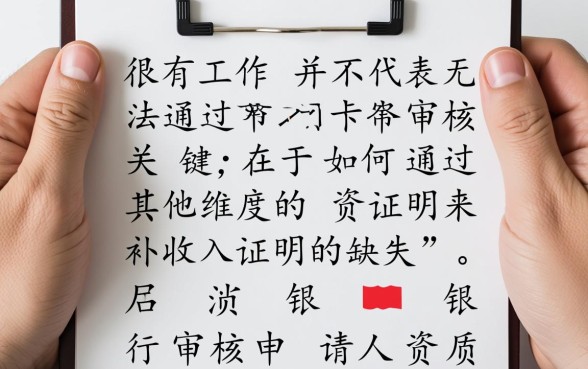 很有工作 并不代表无
法通过 卡 审核
关 键;在于 如何 通过
其他维度的 资证明来
补收入证明的缺失”。
浈 银 银
行审核申 请人资质